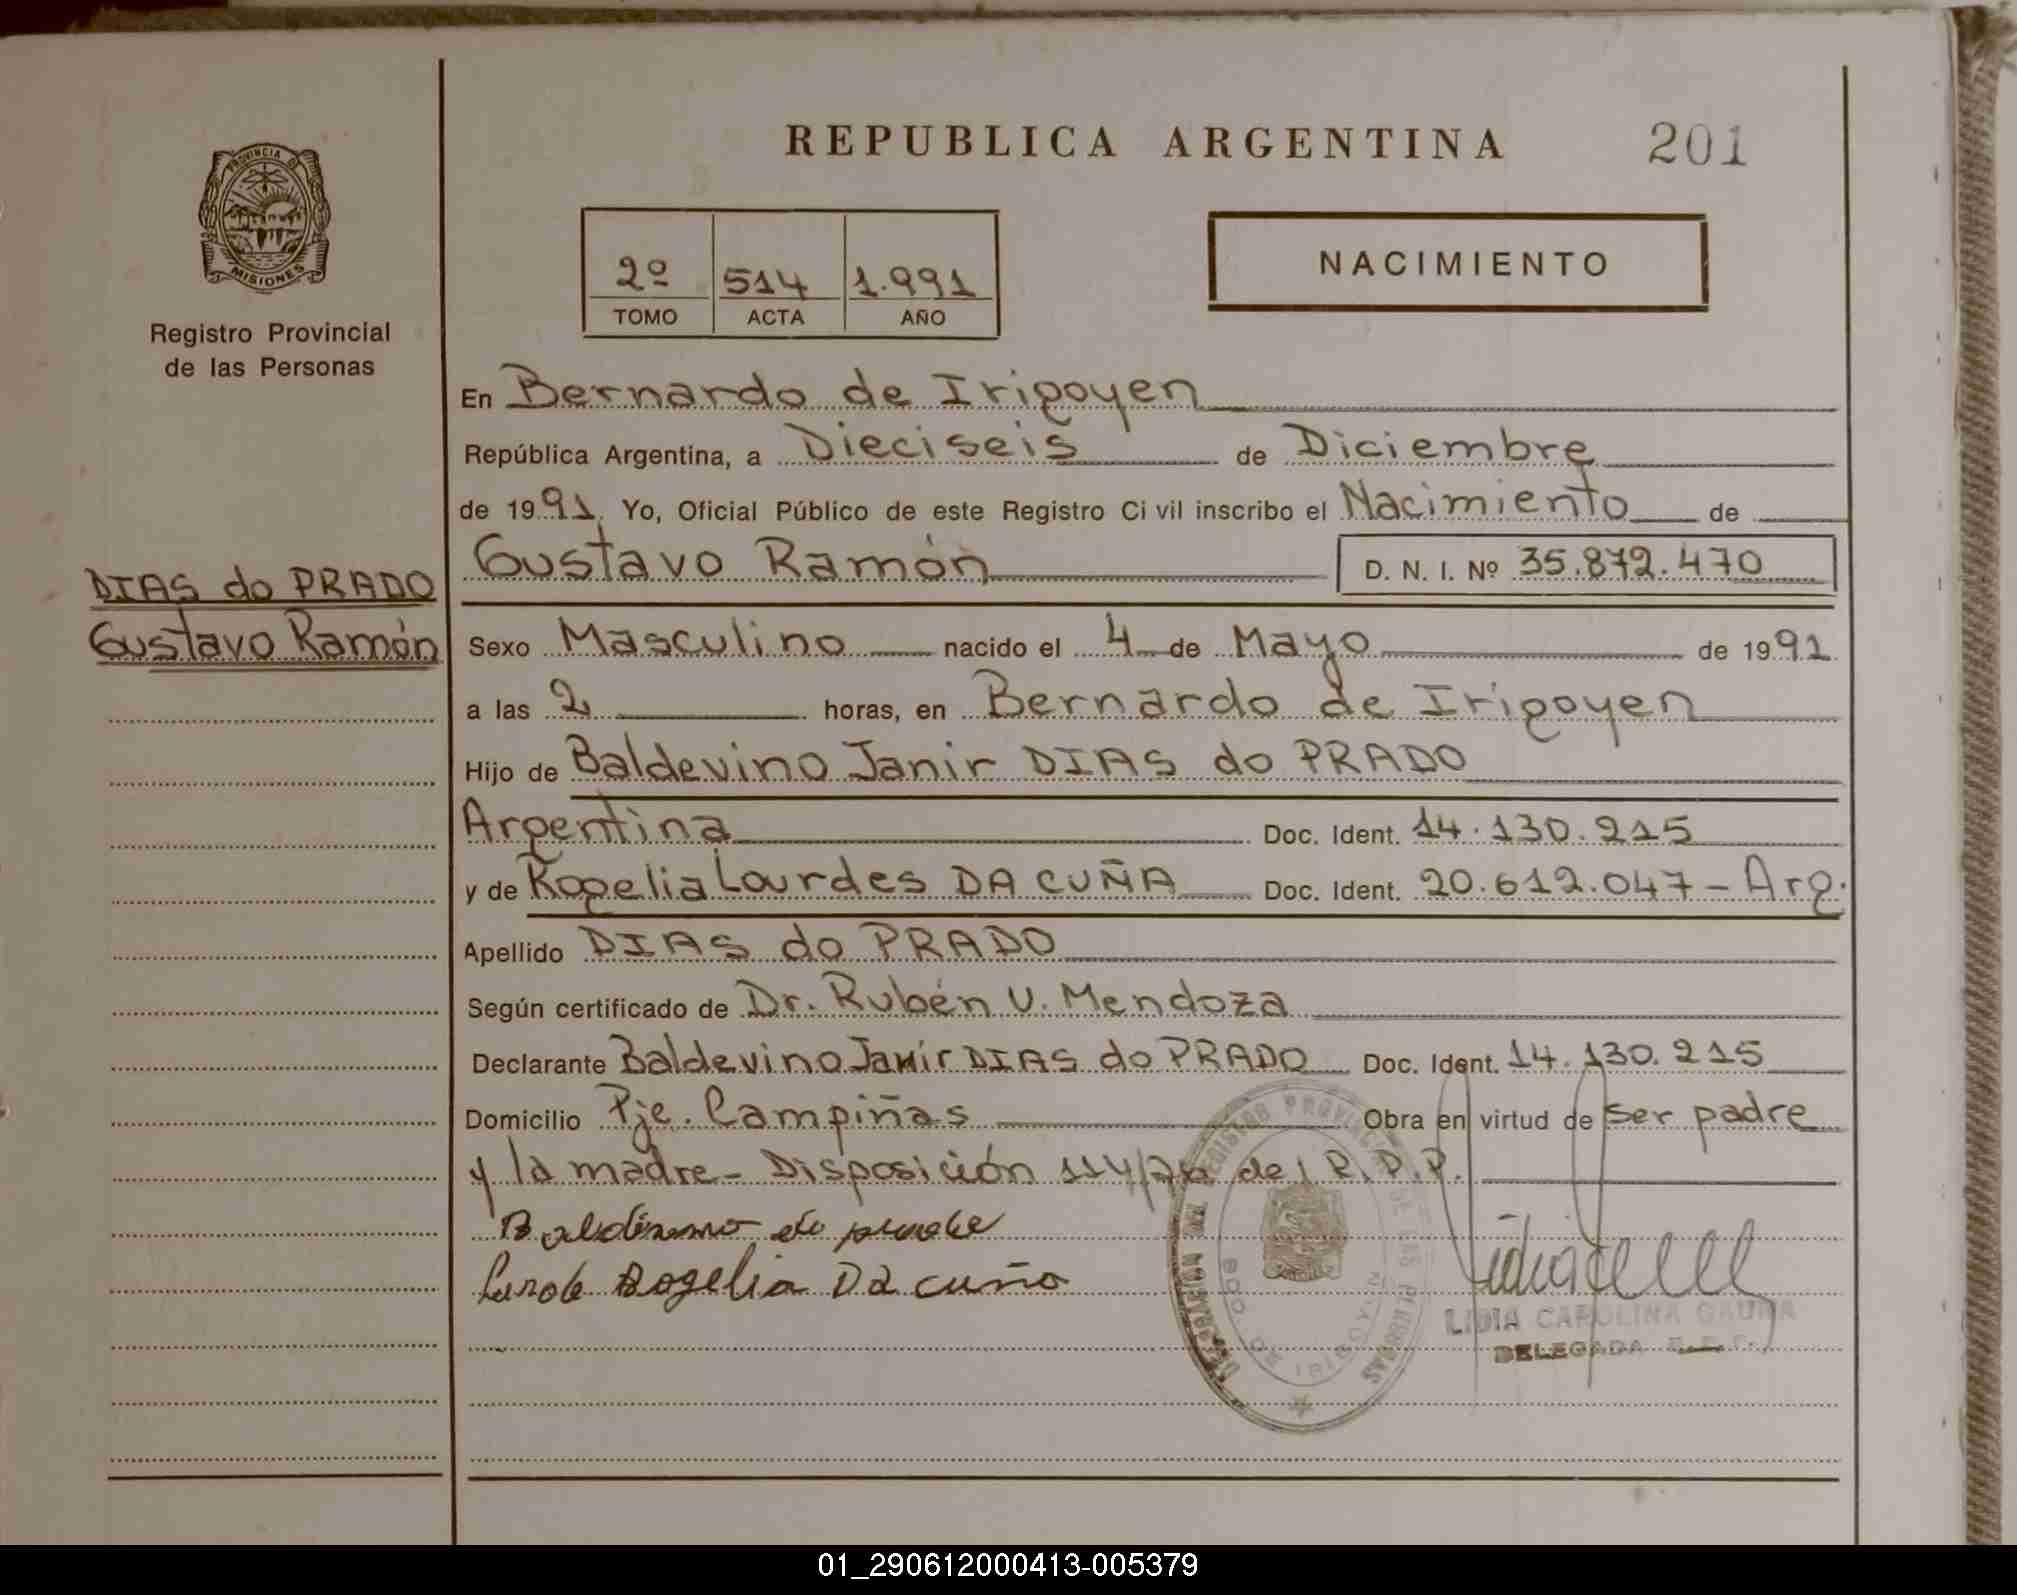 REPUBLICA ARGENTINA 201
PROVINCIA DE
MISIONES
Registro Provincial
de las Personas
2º 514 1.991
TOMO ACTA AÑO
NACIMIENTO
En Bernardo de Irigoyen
República Argentina, a Dieciseis de Diciembre
de 1991. Yo, Oficial Público de este Registro Civil inscribo el Nacimiento de
Gustavo Ramón D. N. I. Nº 35.872.470
DIAS do PRADO
Gustavo Ramón
Sexo Masculino nacido el 4 de Mayo de 1991
a las 2 horas, en Bernardo de Irigoyen
Hijo de Baldevino Janir DIAS do PRADO
Argentina Doc. Ident. 14.130.215
y de Rogelia Lourdes DA CUÑA Doc. Ident. 20.612.047 - Arg.
Apellido DIAS do PRADO
Según certificado de Dr. Rubén V. Mendoza
Declarante Baldevino Janir DIAS do PRADO Doc. Ident. 14.130.215
Domicilio Pje. Campiñas Obra en virtud de ser padre
y la madre - Disposición 114/76 del R.P.P.
Rogelia Da cuña
LIDIA CAROLINA GAUNA
DELEGADA
BDO. DE IRIGOYEN
01_290612000413-005379